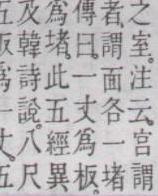 之室。注云。宮謂
者。謂面各一堵
傳曰。一丈爲板。
爲堵。此五經異
及韓詩說。八尺
五
爲
丈。五